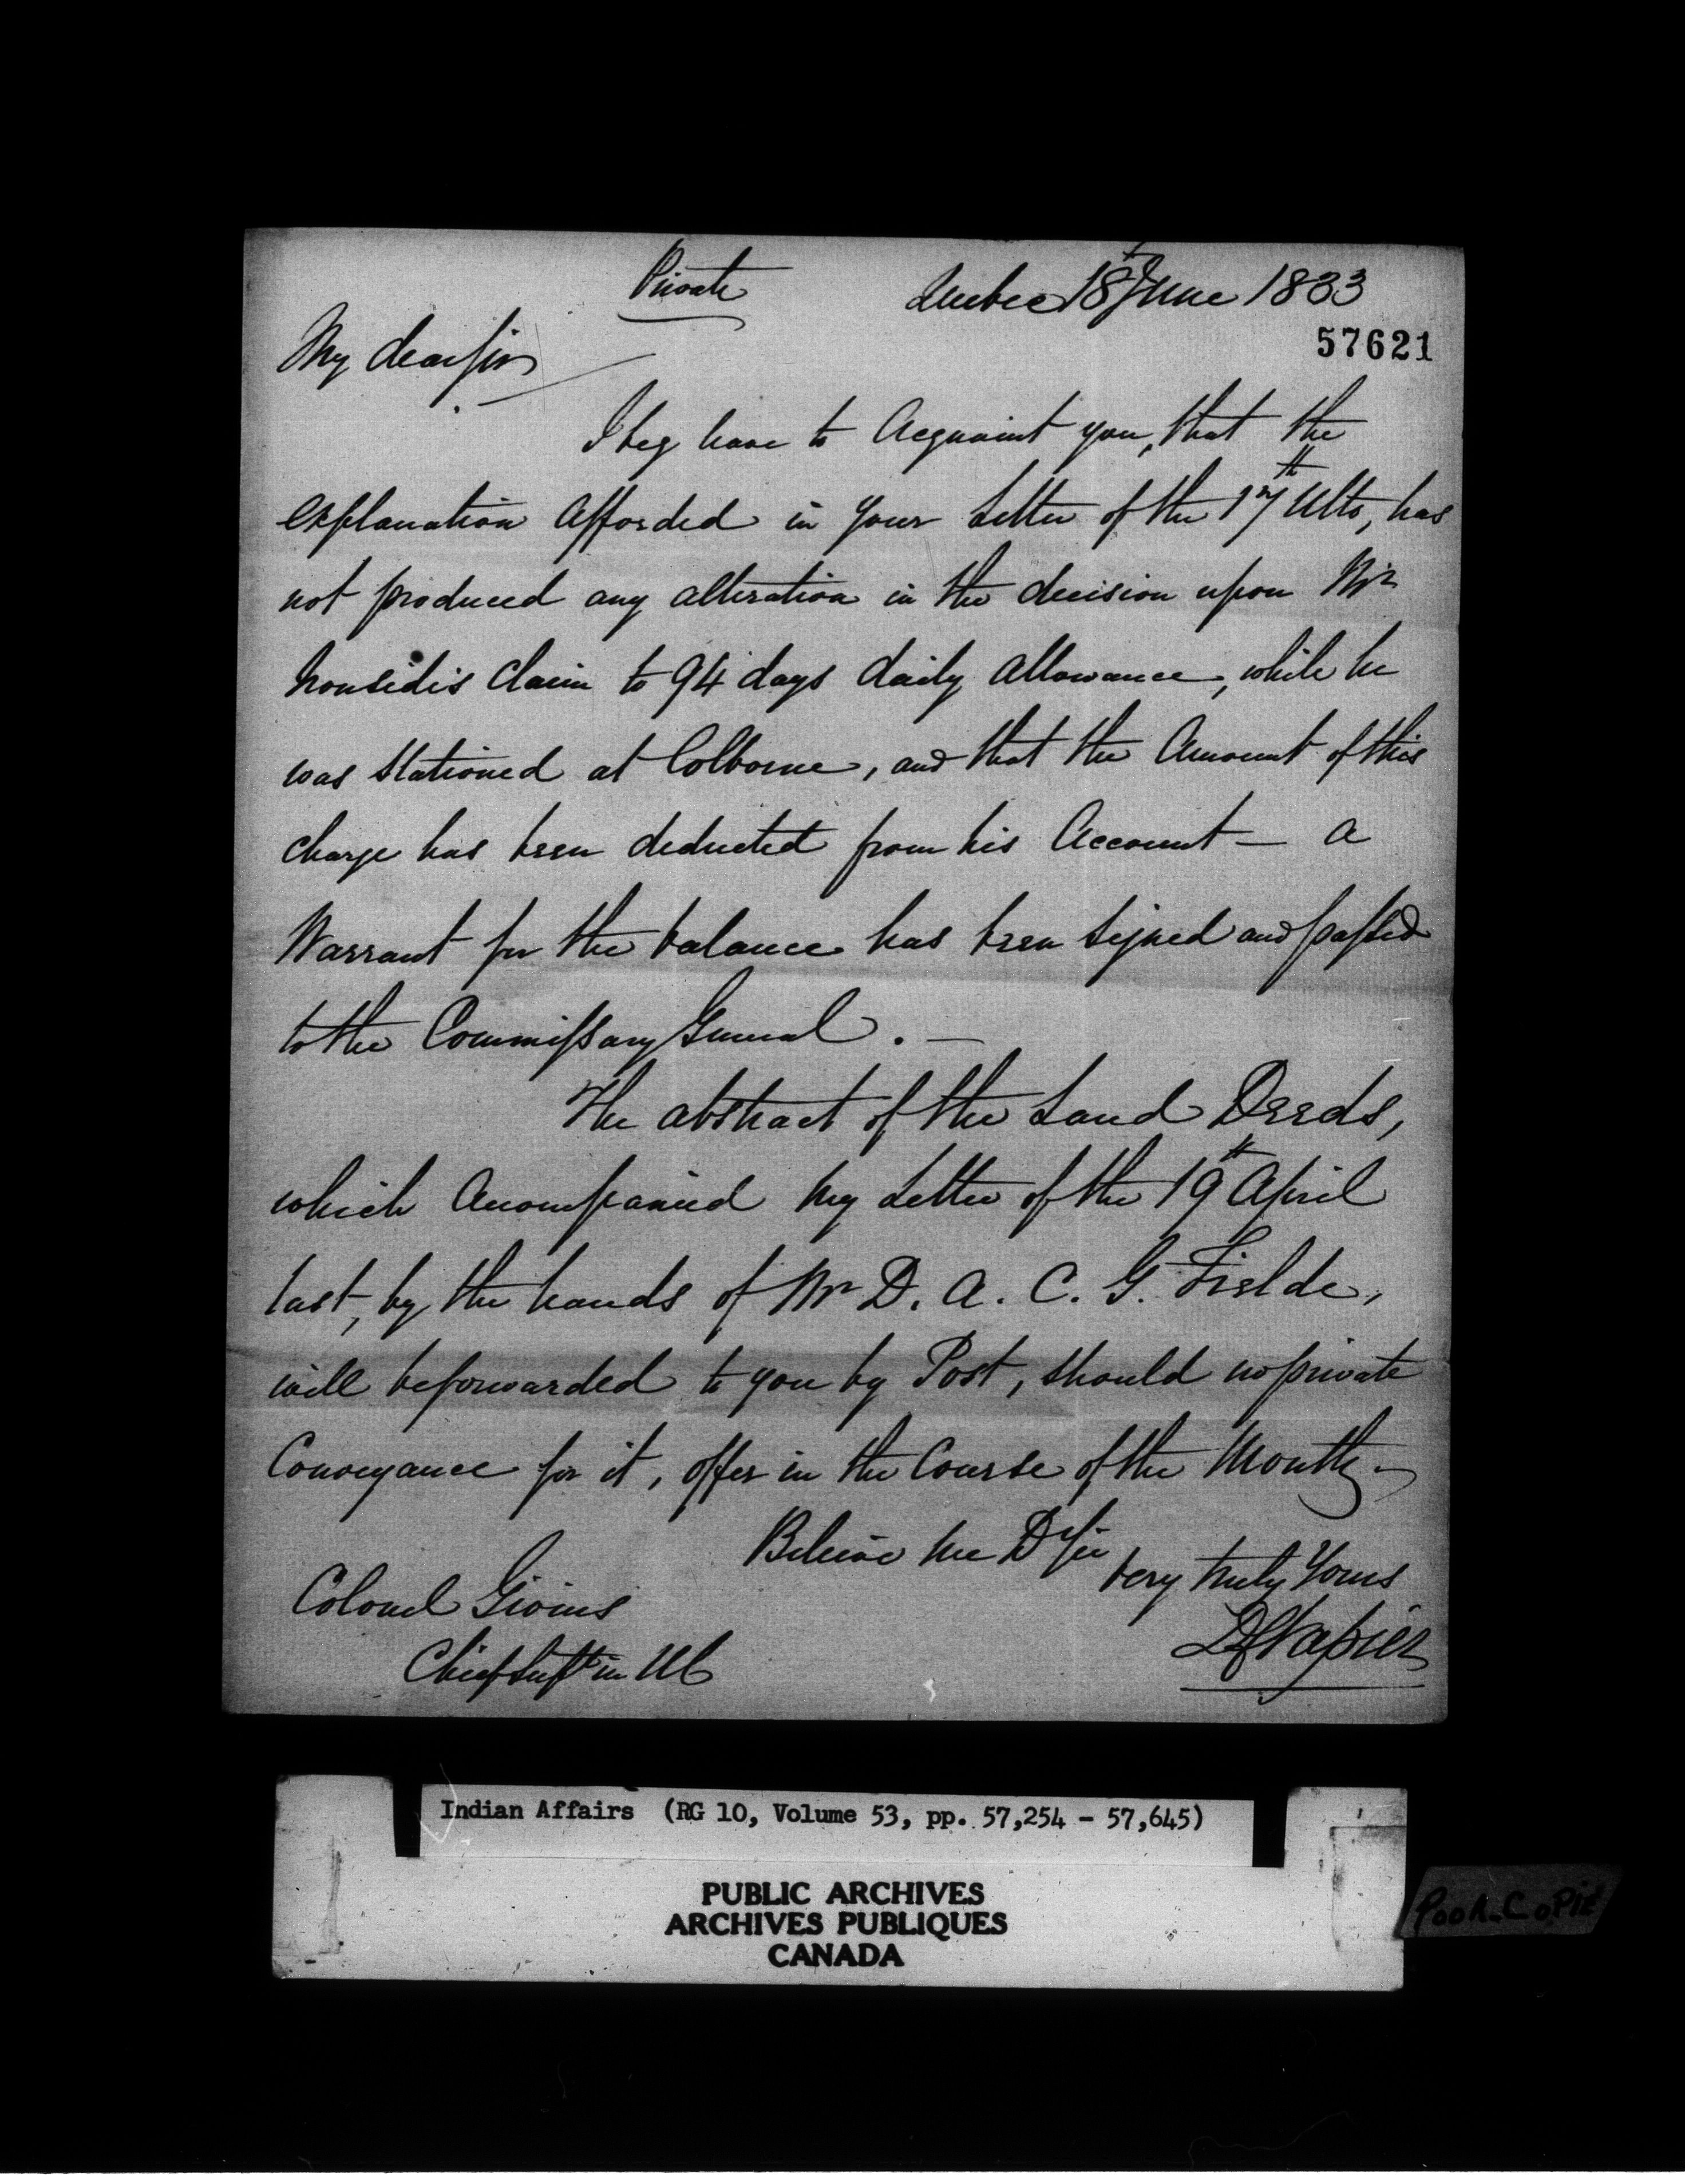 Private
Quebec 18th June 1833
57621
My dear Sir
I beg leave to Acquaint you, that the
explanation afforded in your Letter of the 17th Ulto, has
not produced any alteration in the decision upon Mr
claim to 94 days daily allowance, while he
was stationed at Colborne, and that the Amount of this
charge has been deducted from his Account — A
Warrant for the balance has been signed and passed
to the Commissary General . —
The abstract of the Land Deeds,
which Accompanied my Letter of the 19th April
last, by the hands of Mr D. A. C. G. Fielde,
will be forwarded to you by Post, should no private
Conveyance for it, offer in the Course of the Month —
Believe me D Sir
very truly Yours
Colonel Givins
DCNapier
Chief Supt in UC
Indian Affairs (RG 10, Volume 53, pp. 57,254 - 57,645)
PUBLIC ARCHIVES
ARCHIVES PUBLIQUES
CANADA
POOR COPIE